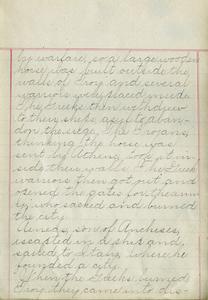 by warfare, so a large wooden
horse was built outside the
walls of Troy and several
warriors were placed inside.
The Greeks then withdrew
to their ships as if to aban-
don the siege. The Trojans,
thinking the horse was
sent by Athena, took it in-
side their walls. The Greek
warriors then got out and
opened the gates for the arm
y who sacked and burned
the city.
Aeneas, son of Anchises,
escaped in a ship and
sailed to Italy where he
founded a city.
When the Greeks burned
Troy, they came into dis-